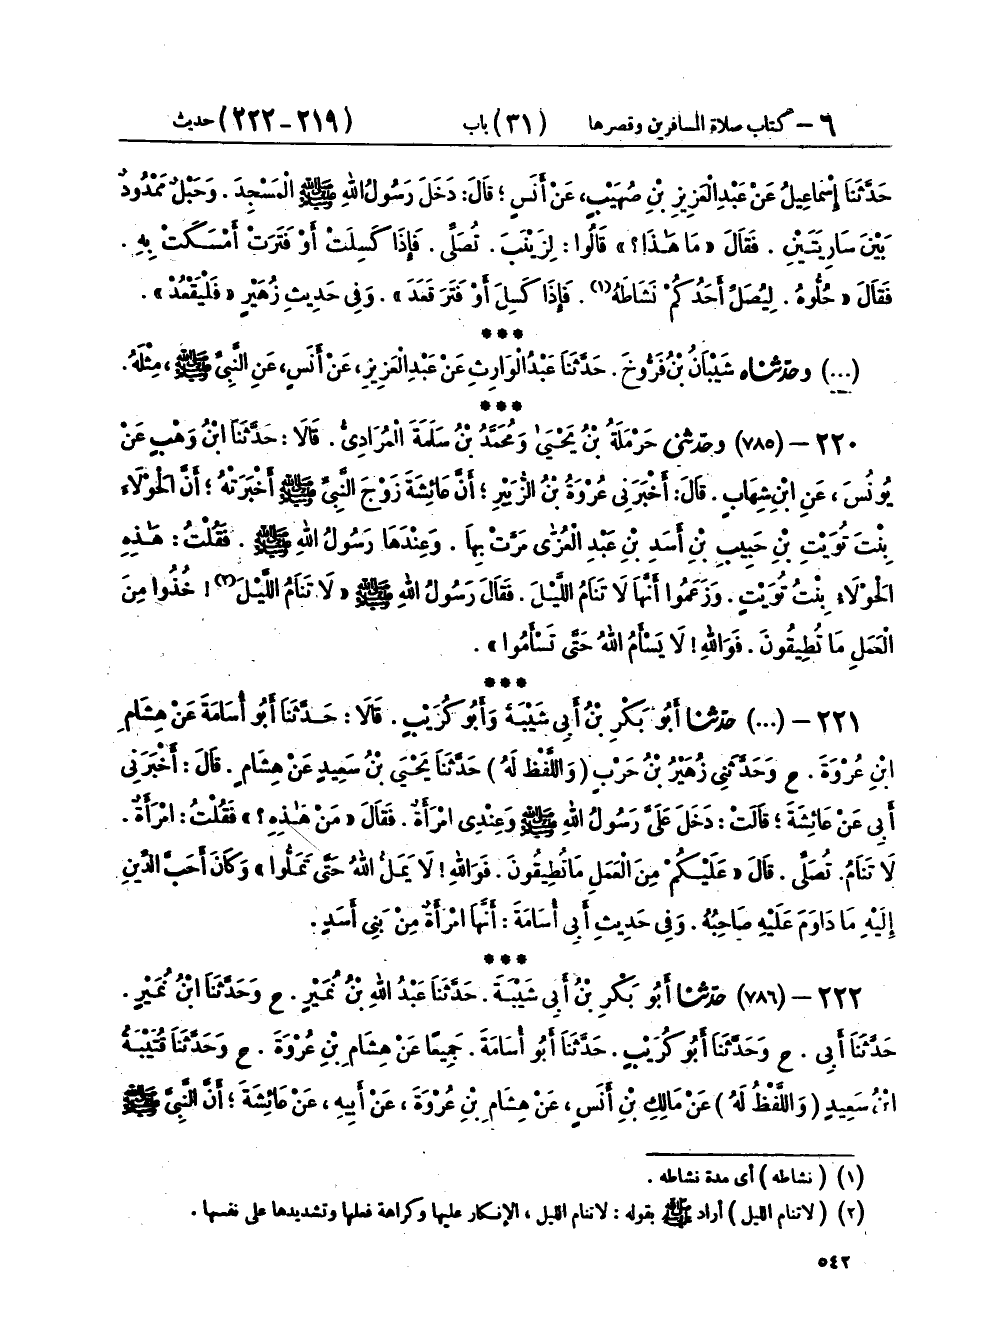 ٦ - كتاب صلاة المسافرين وقصرها (٣١) باب (٢١٩-٢٢٢) حديث
حَدَّثَنَا إِسْمَاعِيلُ عَنْ عَبْدِالْعَزِيزِ بْنِ صُهَيْبٍ، عَنْ أَنَسٍ ؛ قَالَ: دَخَلَ رَسُولُ اللهِ ﷺ الْمَسْجِدَ . وَحَبْلٌ مَمْدُودٌ
بَيْنَ سَارِيَتَيْنِ . فَقَالَ « مَا هَٰذَا؟ » قَالُوا: لِزَيْنَبَ . تُصَلِّى . فَإِذَا كَسِلَتْ أَوْ فَتَرَتْ أَمْسَكَتْ بِهِ .
فَقَالَ « حُلُّوهُ . لِيُصَلِّ أَحَدُكُمْ نَشَاطَهُ(١) . فَإِذَا كَسِلَ أَوْ فَتَرَ قَعَدَ » . وَفِى حَدِيثِ زُهَيْرٍ « فَلْيَقْعُدْ » .
***
(...) وحدثناه شَيْبَانُ بْنُ فَرُّوخَ . حَدَّثَنَا عَبْدُالْوَارِثِ عَنْ عَبْدِالْعَزِيزِ، عَنْ أَنَسٍ، عَنِ النَّبِيِّ ﷺ، مِثْلَهُ.
***
٢٢٠ - (٧٨٥) وحدثنى حَرْمَلَةُ بْنُ يَحْيَىٰ وَمُحَمَّدُ بْنُ سَلَمَةَ الْمُرَادِىُّ . قَالَا : حَدَّثَنَا ابْنُ وَهْبٍ عَنْ
يُونُسَ ، عَنِ ابْنِ شِهَابٍ . قَالَ: أَخْبَرَنِى عُرْوَةُ بْنُ الزُّبَيْرِ ؛ أَنَّ عَائِشَةَ زَوْجَ النَّبِيِّ ﷺ أَخْبَرَتْهُ ؛ أَنَّ الْحَوْلَاءَ
بِنْتَ تُوَيْتِ بْنِ حَبِيبِ بْنِ أَسَدِ بْنِ عَبْدِ الْعُزَّى مَرَّتْ بِهَا . وَعِنْدَهَا رَسُولُ اللهِ ﷺ . فَقُلْتُ: هَٰذِهِ
الْحَوْلَاءِ بِنْتُ تُوَيْتٍ . وَزَعَمُوا أَنَّهَا لَا تَنَامُ اللَّيْلَ . فَقَالَ رَسُولُ اللهِ ﷺ « لَا تَنَامُ اللَّيْلَ(٢) ! خُذُوا مِنَ
الْعَمَلِ مَا تُطِيقُونَ . فَوَاللهِ ! لَا يَسْأَمُ اللهُ حَتَّى تَسْأَمُوا » .
***
٢٢١ - (...) حدثنا أَبُو بَكْرِ بْنُ أَبِى شَيْبَةَ وَأَبُو كُرَيْبٍ . قَالَا : حَدَّثَنَا أَبُو أُسَامَةَ عَنْ هِشَامِ
ابْنِ عُرْوَةَ . ح وَحَدَّثَنِى زُهَيْرُ بْنُ حَرْبٍ (وَاللَّفْظُ لَهُ) حَدَّثَنَا يَحْيَىٰ بْنُ سَعِيدٍ عَنْ هِشَامٍ . قَالَ : أَخْبَرَنِى
أَبِى عَنْ عَائِشَةَ ؛ قَالَتْ: دَخَلَ عَلَىَّ رَسُولُ اللهِ ﷺ وَعِنْدِى امْرَأَةٌ . فَقَالَ « مَنْ هَٰذِهِ ؟ » فَقُلْتُ: امْرَأَةٌ .
لَا تَنَامُ. تُصَلِّى . قَالَ « عَلَيْكُمْ مِنَ الْعَمَلِ مَا تُطِيقُونَ . فَوَاللهِ ! لَا يَمَلُّ اللهُ حَتَّى تَمَلُّوا » وَكَانَ أَحَبَّ الدِّينِ
إِلَيْهِ مَا دَاوَمَ عَلَيْهِ صَاحِبُهُ . وَفِى حَدِيثِ أَبِى أُسَامَةَ : أَنَّهَا امْرَأَةٌ مِنْ بَنِى أَسَدٍ .
***
٢٢٢ - (٧٨٦) حدثنا أَبُو بَكْرِ بْنُ أَبِى شَيْبَةَ . حَدَّثَنَا عَبْدُ اللهِ بْنُ نُمَيْرٍ . ح وَحَدَّثَنَا ابْنُ نُمَيْرٍ .
حَدَّثَنَا أَبِى . ح وَحَدَّثَنَا أَبُو كُرَيْبٍ . حَدَّثَنَا أَبُو أُسَامَةَ . جَمِيعًا عَنْ هِشَامِ بْنِ عُرْوَةَ . ح وَحَدَّثَنَا قُتَيْبَةُ
ابْنُ سَعِيدٍ (وَاللَّفْظُ لَهُ) عَنْ مَالِكِ بْنِ أَنَسٍ ، عَنْ هِشَامِ بْنِ عُرْوَةَ ، عَنْ أَبِيهِ ، عَنْ عَائِشَةَ ؛ أَنَّ النَّبِيَّ ﷺ
(١) (نشاطه) أى مدة نشاطه .
(٢) (لا تنام الليل) أراد ﷺ بقوله : لا تنام الليل ، الإنكار عليها وكراهة فعلها وتشديدها على نفسها .
٥٤٢